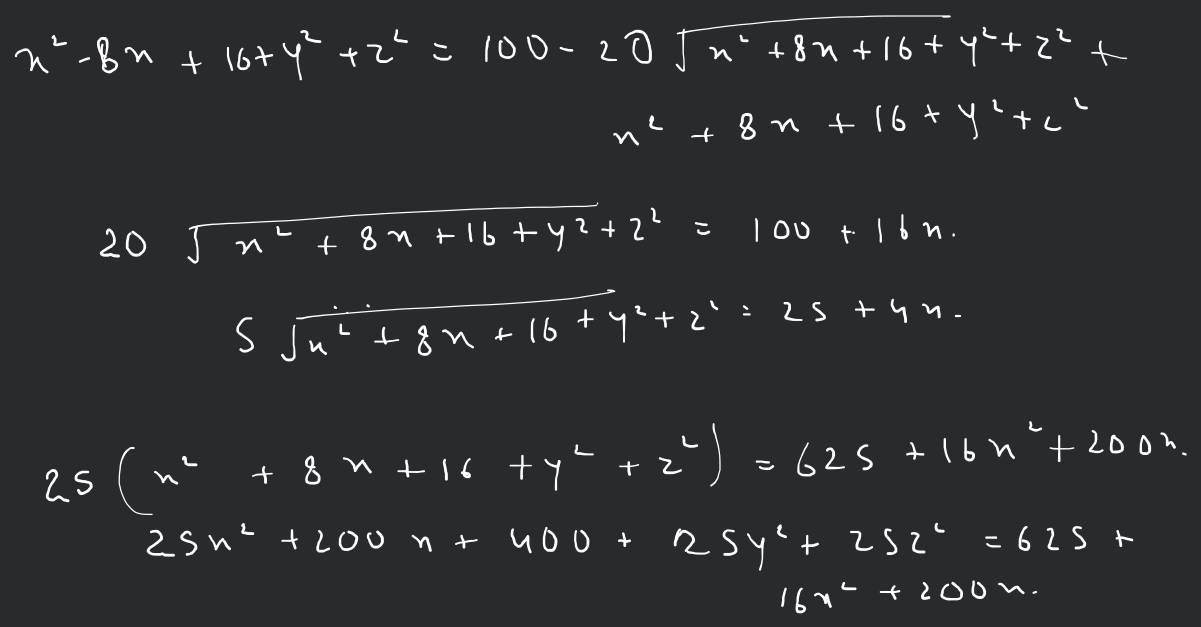 x² - 8x + 16 + y² + z² = 100 - 20 √x² + 8x + 16 + y² + z² +
x² + 8x + 16 + y² + z²
20 √x² + 8x + 16 + y² + z² = 100 + 16x.
5 √x² + 8x + 16 + y² + z² = 25 + 4x.
25 (x² + 8x + 16 + y² + z²) = 625 + 16x² + 200x.
25x² + 200x + 400 + 25y² + 25z² = 625 +
16x² + 200x.